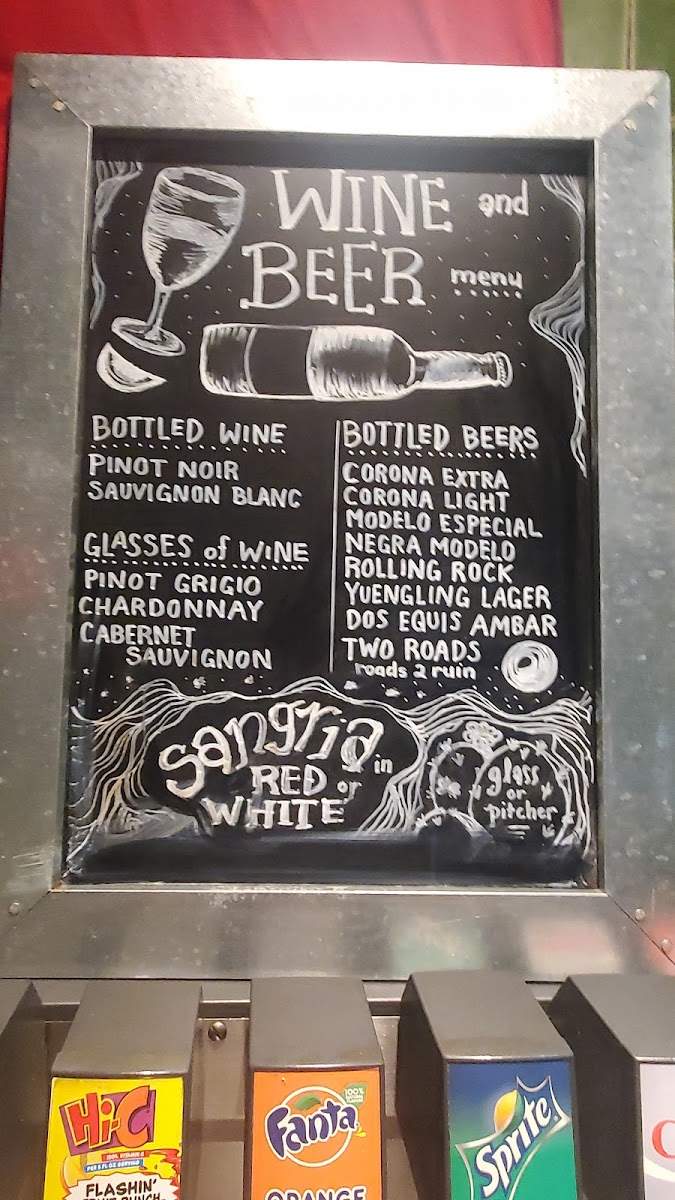 WINE and
BEER menu
BOTTLED WINE
PINOT NOIR
SAUVIGNON BLANC
GLASSES of WINE
PINOT GRIGIO
CHARDONNAY
CABERNET
SAUVIGNON
BOTTLED BEERS
CORONA EXTRA
CORONA LIGHT
MODELO ESPECIAL
NEGRA MODELO
ROLLING ROCK
YUENGLING LAGER
DOS EQUIS AMBAR
TWO ROADS
roads 2 ruin
sangria in
RED or
WHITE
glass
or
pitcher
Hi-C
100% VITAMIN C
PER 8 FL OZ SERVING
FLASHIN'
FRUIT PUNCH
100%
Fanta
ORANGE
Sprite